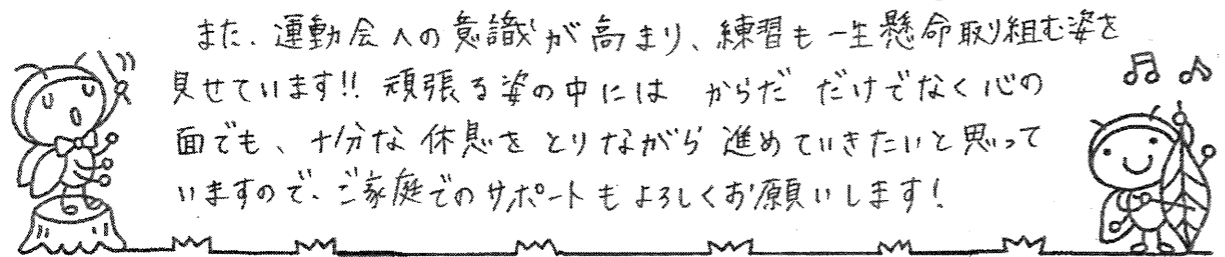 また、運動会への意識が高まり、練習も一生懸命取り組む姿を
見せています!! 頑張る姿の中には からだ だけでなく心の
面でも、十分な休息をとりながら進めていきたいと思って
いますので、ご家庭でのサポートもよろしくお願いします!